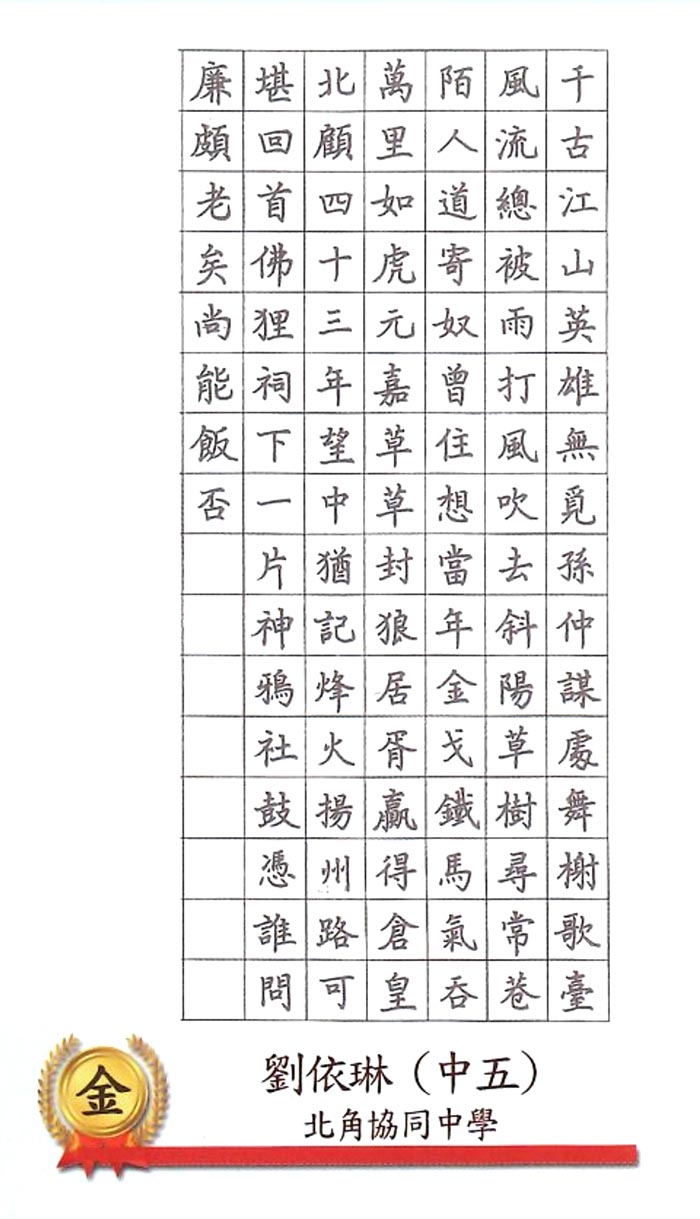 千古江山英雄無覓孫仲謀處舞榭歌臺
風流總被雨打風吹去斜陽草樹尋常巷
陌人道寄奴曾住想當年金戈鐵馬氣吞
萬里如虎元嘉草草封狼居胥贏得倉皇
北顧四十三年望中猶記烽火揚州路可
堪回首佛狸祠下一片神鴉社鼓憑誰問
廉頗老矣尚能飯否
金
劉依琳（中五）
北角協同中學